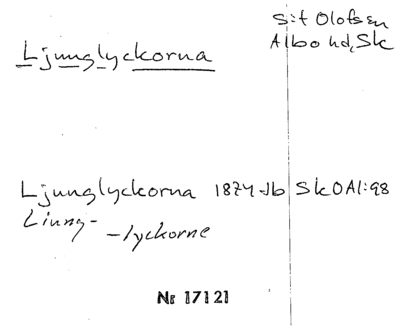 S:t Olofs sn
Albo hd, Sk
Ljunglyckorna
Ljunglyckorna 1874 Jb SkOAl:98
Liung-
-lyckorne
Nr 17121